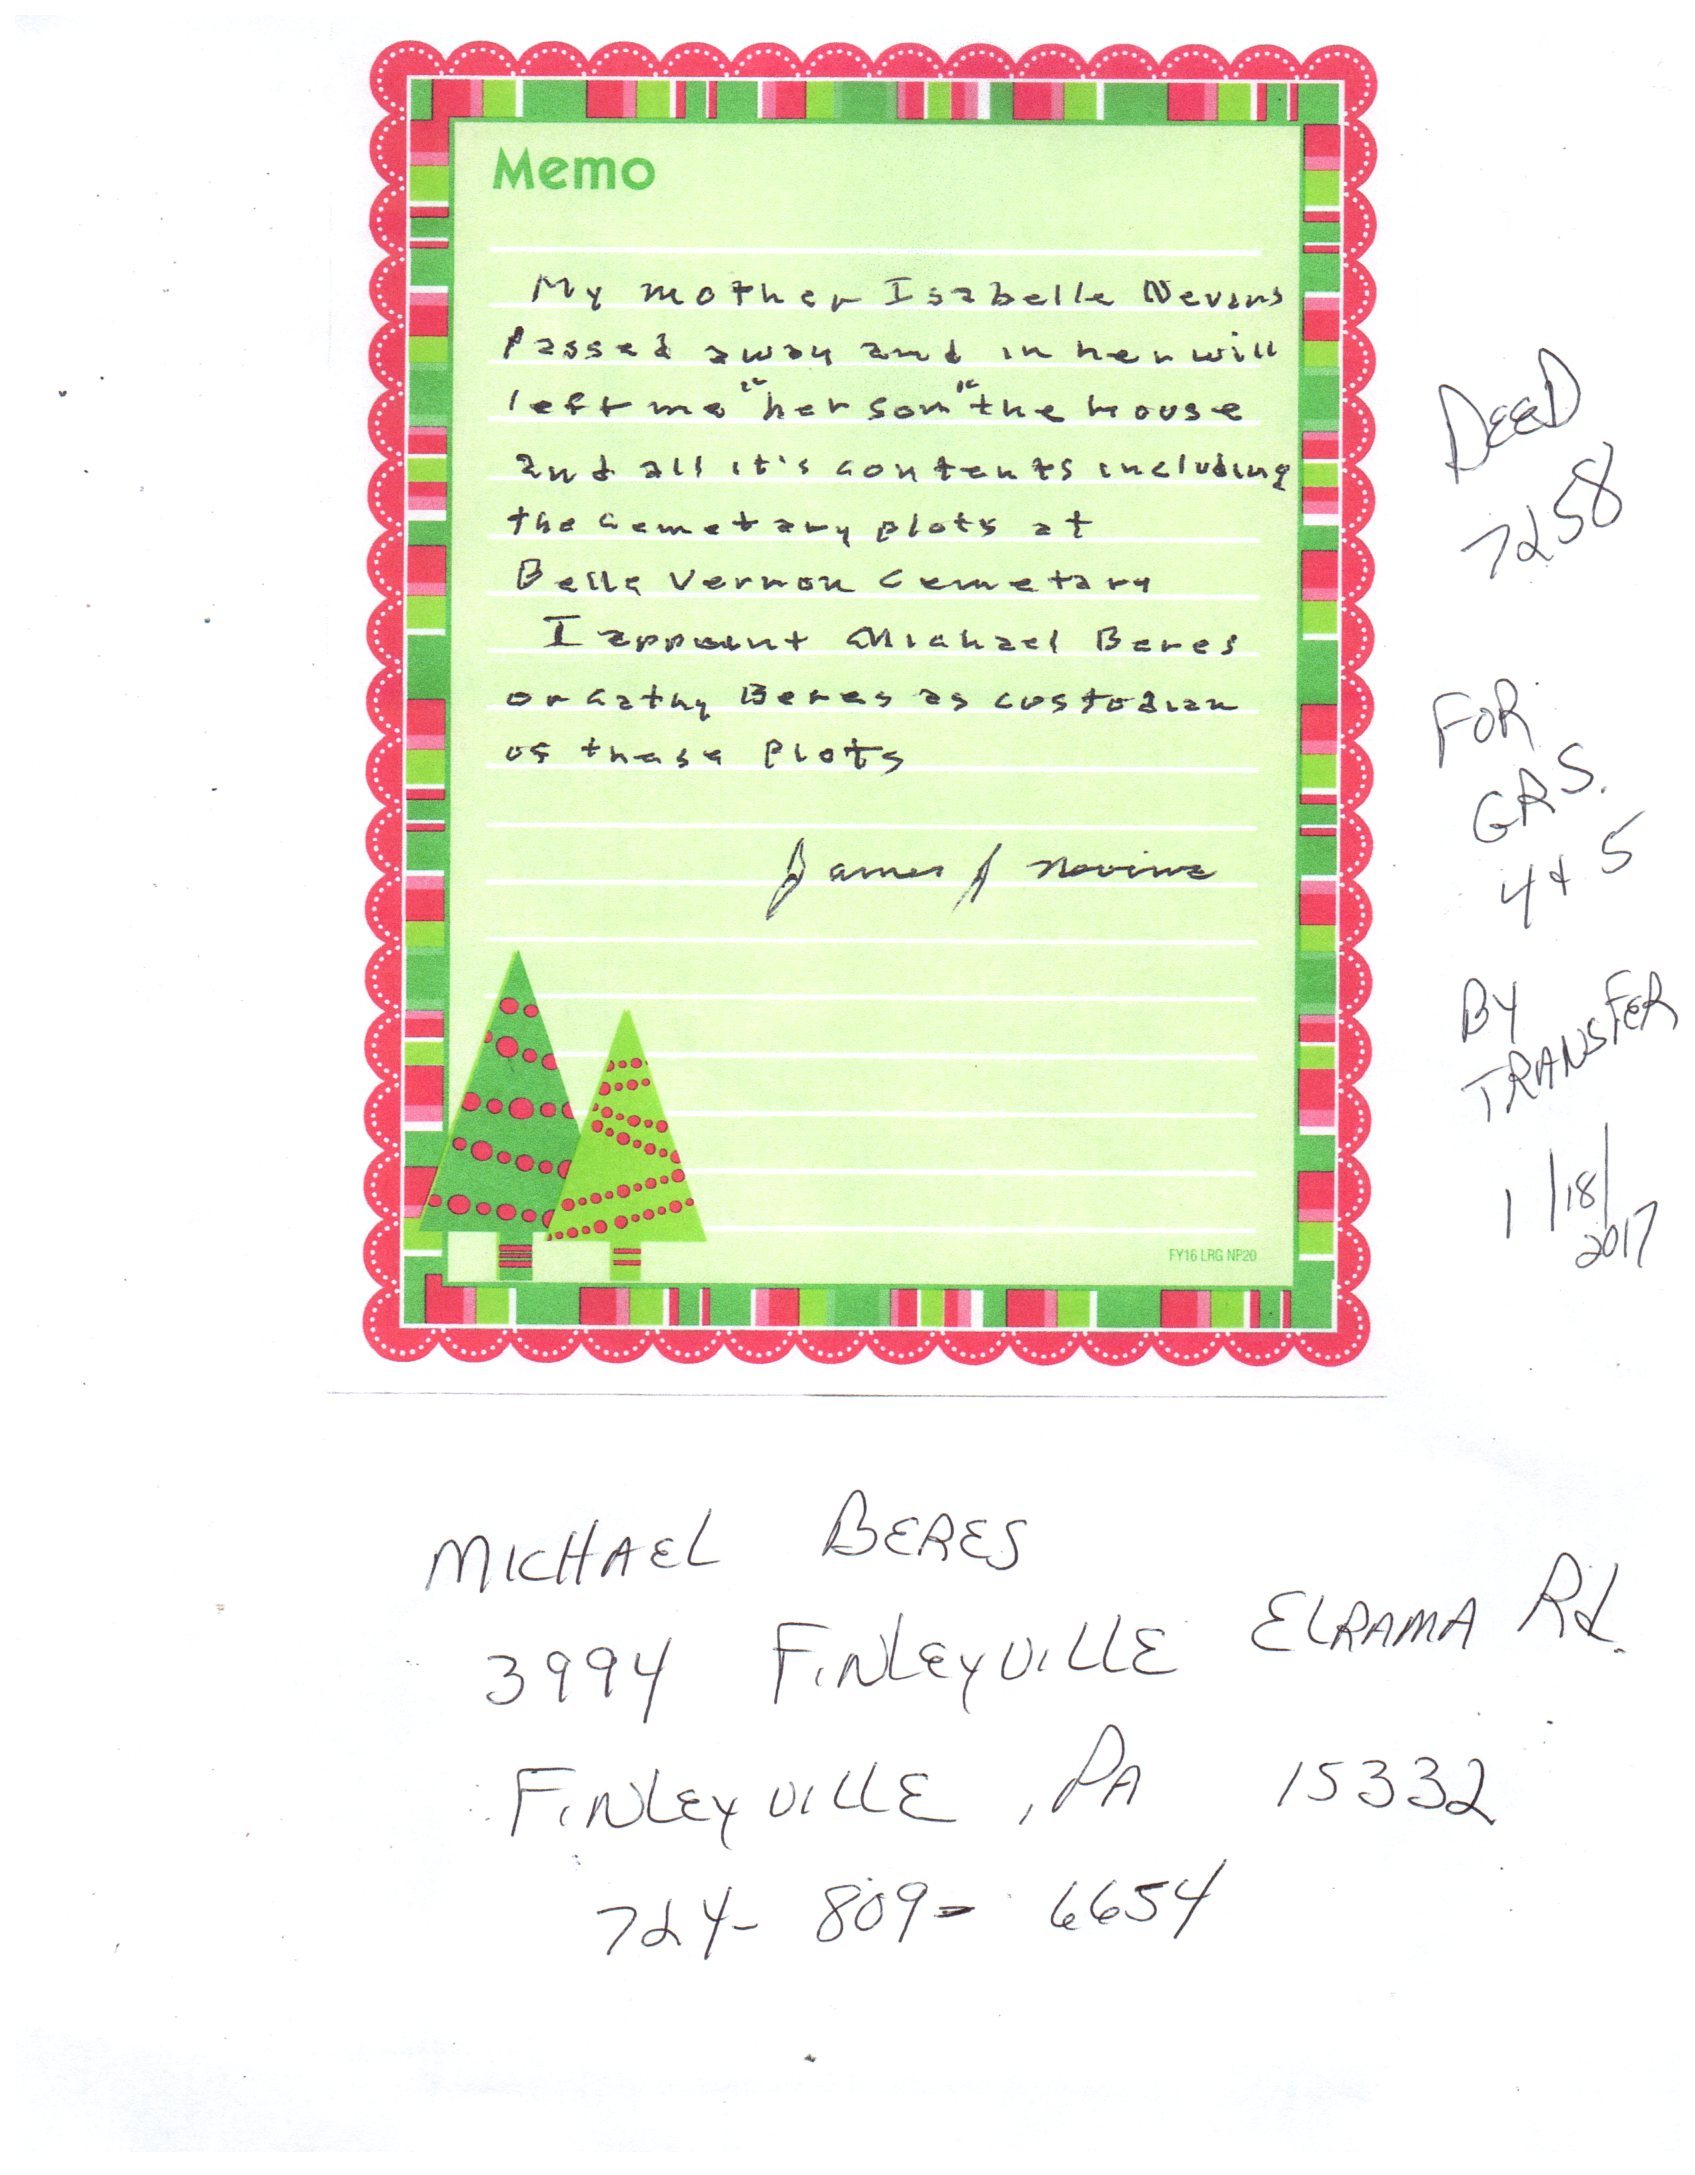 Memo
My mother Isabelle Nevins
Passed away and in her will
left me "her son" the house
and all it's contents including
the cemetary plots at
Belle Vernon Cemetary
I appoint Michael Beres
or Cathy Beres as custodian
of these Plots
James J Nevins
FY16 LRG NP20
DEED
7258
FOR
GRS.
4 + 5
BY
TRANSFER
1/18/
2017
MICHAEL BERES
3994 FINLEYVILLE ELRAMA Rd.
FINLEYVILLE, PA 15332
724-809-6654